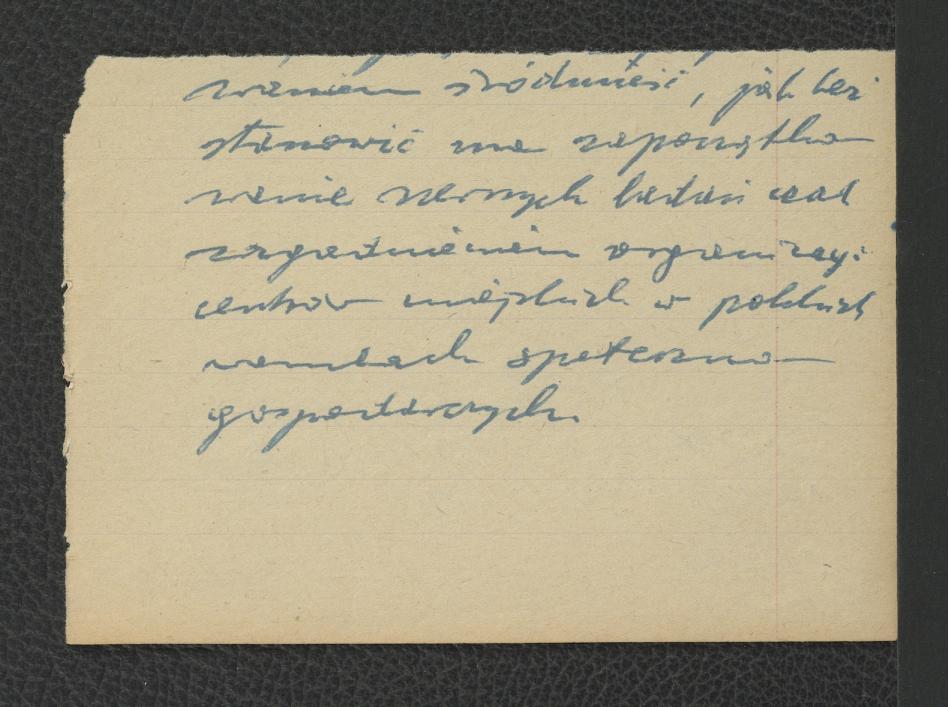 waniem śródmieść, jak też
stanowić ma zapoczątko
wanie szerszych badań nad
zagadnieniem organizacji
centrów miejskich w polskich
warunkach społeczno
gospodarczych.